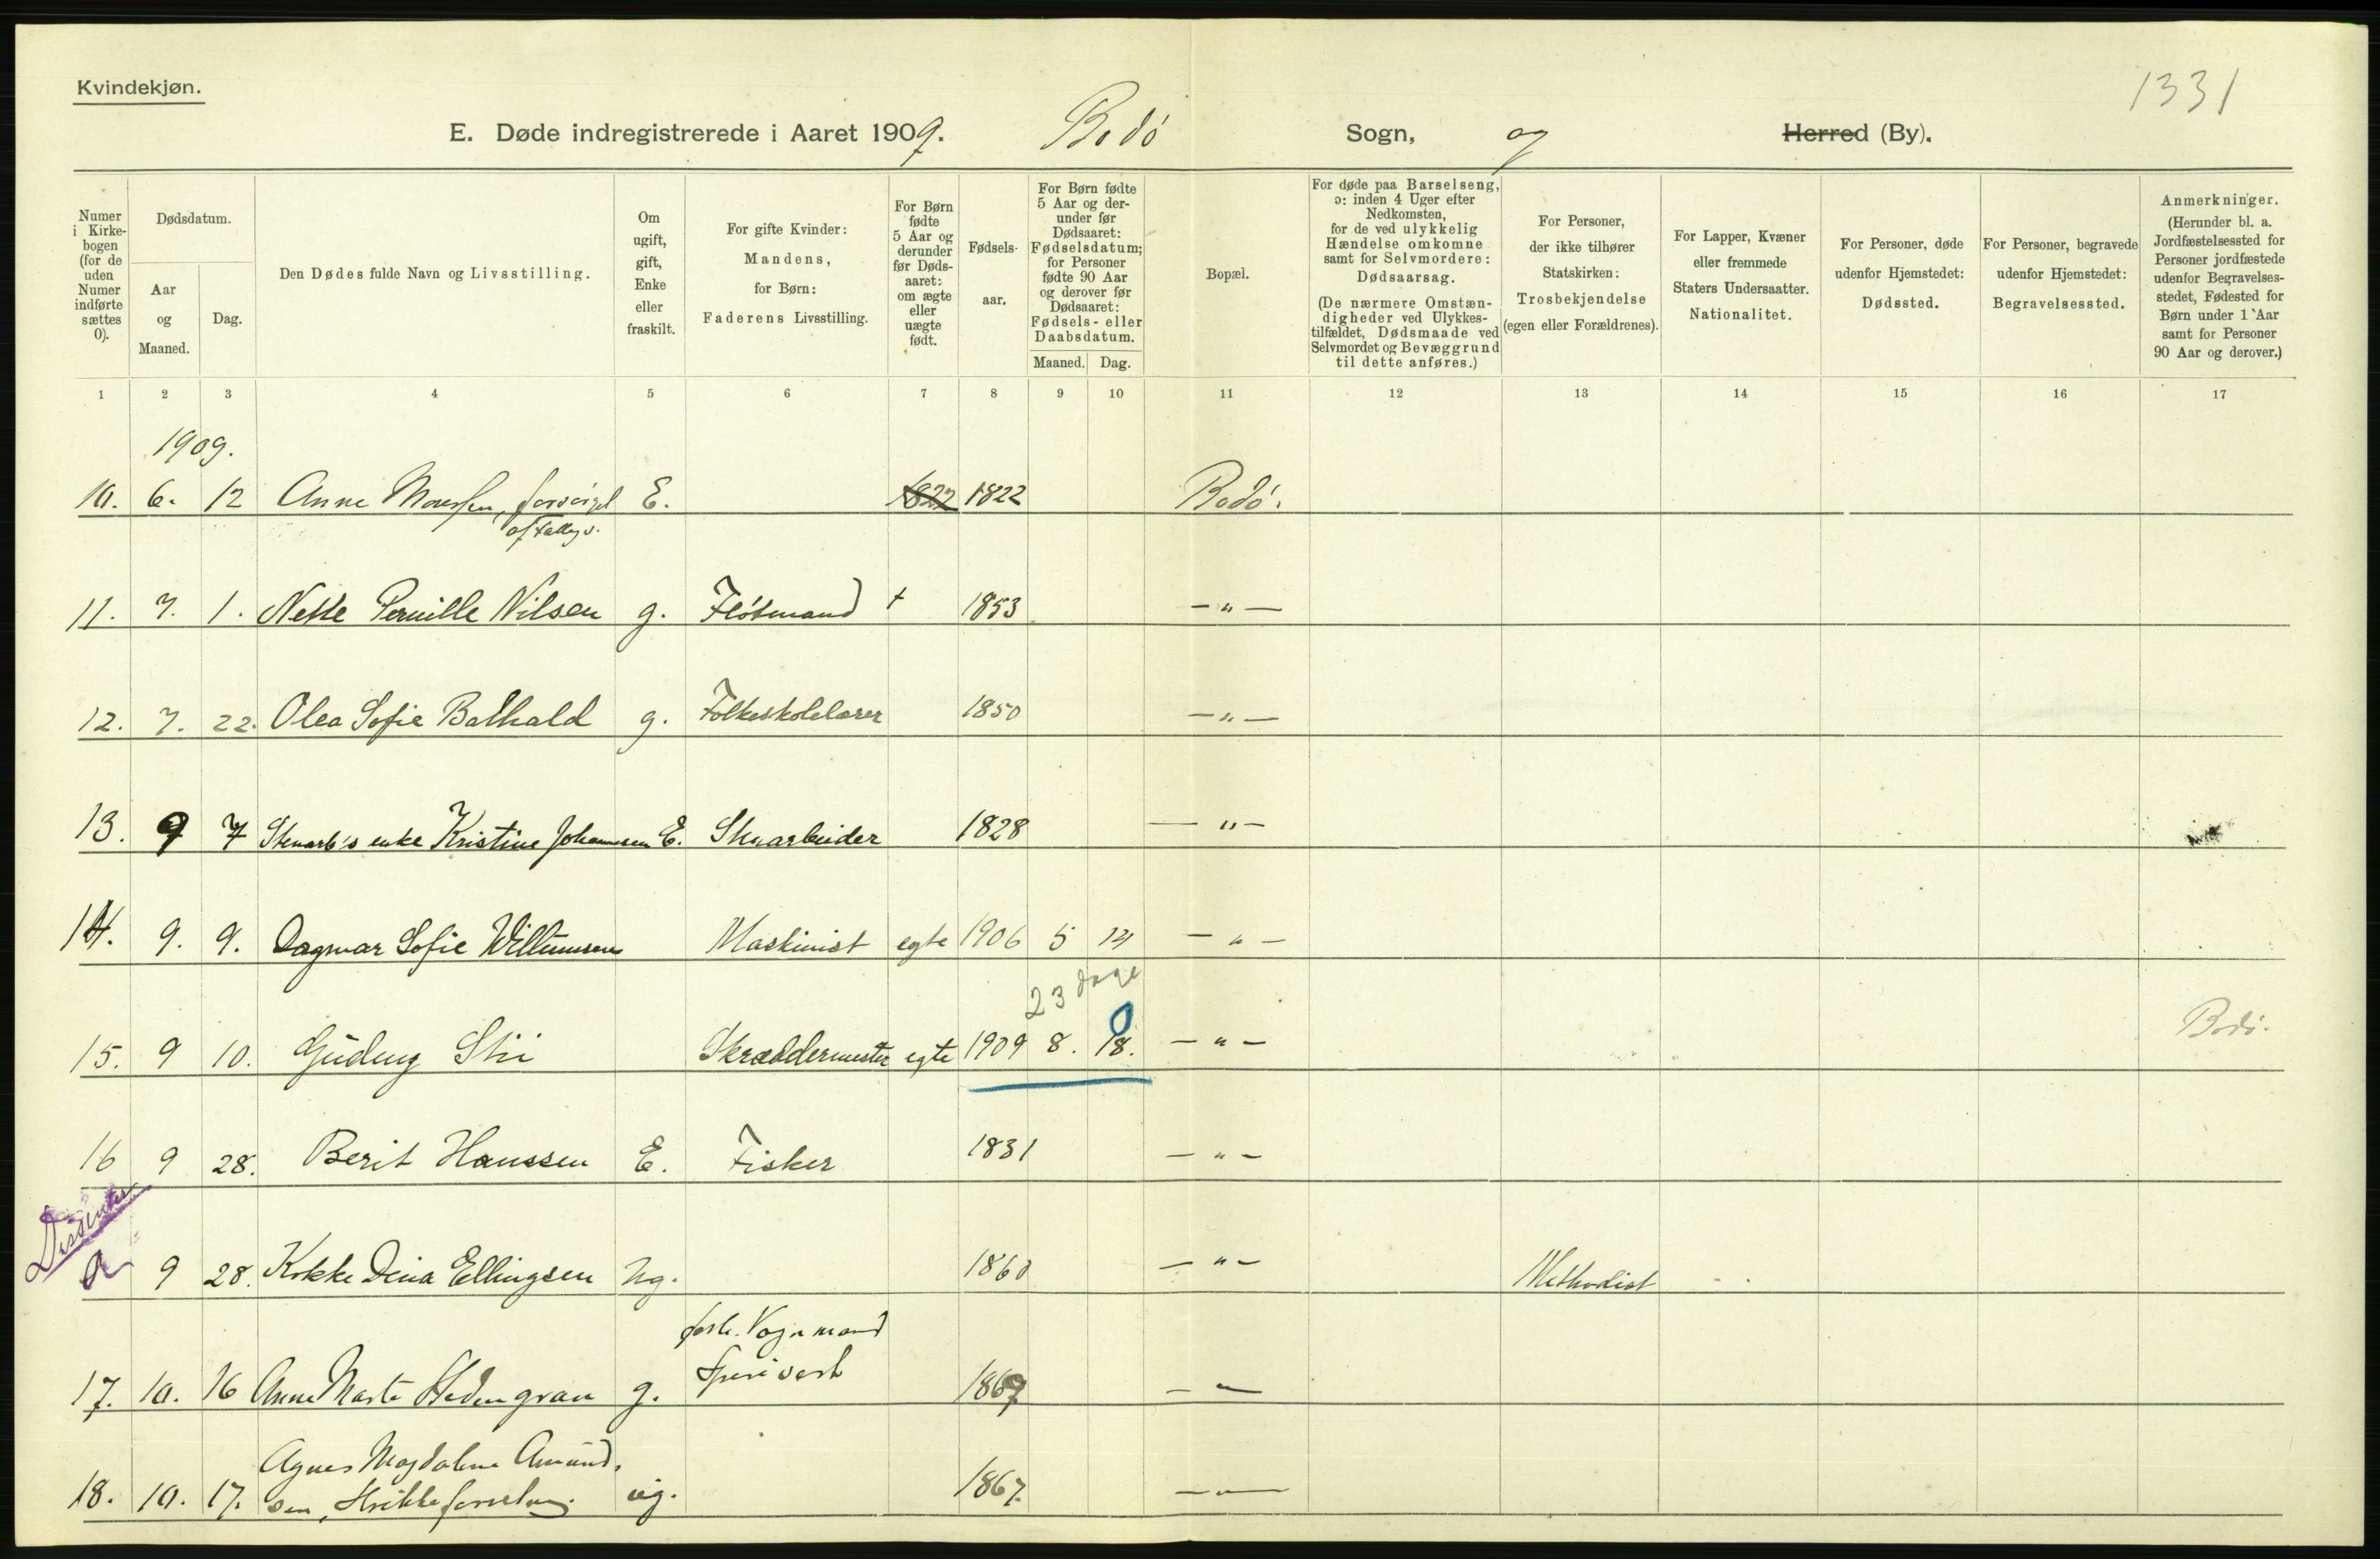 Kvindekjøn.
1331
E. Døde indregistrerede i Aaret 1909. Bodø Sogn, og Herred (By).
Numer i Kirkebogen (for de uden Numer indførte sættes 0).
Dødsdatum.
Aar og Maaned.
Dag.
Den Dødes fulde Navn og Livsstilling.
Om ugift, gift, Enke eller fraskilt.
For gifte Kvinder: Mandens, for Børn: Faderens Livsstilling.
For Børn fødte 5 Aar og derunder før Dødsaaret: om ægte eller uægte født.
Fødselsaar.
For Børn fødte 5 Aar og derunder før Dødsaaret: Fødselsdatum; for Personer fødte 90 Aar og derover før Dødsaaret: Fødsels- eller Daabsdatum.
Maaned. Dag.
Bopæl.
For døde paa Barselseng, ɔ: inden 4 Uger efter Nedkomsten, for de ved ulykkelig Hændelse omkomne samt for Selvmordere: Dødsaarsag. (De nærmere Omstændigheder ved Ulykkestilfældet, Dødsmaade ved Selvmordet og Bevæggrund til dette anføres.)
For Personer, der ikke tilhører Statskirken: Trosbekjendelse (egen eller Forældrenes).
For Lapper, Kvæner eller fremmede Staters Undersaatter. Nationalitet.
For Personer, døde udenfor Hjemstedet: Dødssted.
For Personer, begravede udenfor Hjemstedet: Begravelsessted.
Anmerkninger. (Herunder bl. a. Jordfæstelsessted for Personer jordfæstede udenfor Begravelsesstedet, Fødested for Børn under 1 Aar samt for Personer 90 Aar og derover.)
1 2 3 4 5 6 7 8 9 10 11 12 13 14 15 16 17
1909.
10. 6. 12 Anne forsørget E. 1822 1822 Bodø.
af fattigv.
11. 7. 1. Nette Pernille Nilsen g. Fløtmand + 1853 — „ —
12. 7. 22. Olea Sofie Balhald g. Folkeskolelærer 1850 — „ —
13. 9 7 Stenarb's enke Kristine Johannesen E. Stenarbeider 1828 — „ —
14. 9. 9. Dagmar Sofie Willumsen Maskinist egte 1906 5 14 — „ —
23 dage
15. 9 10. Gudny Skræddermester egte 1909 8. 18. — „ — Bodø.
0
16 9 28. Berit Hanssen E. Fisker 1831 — „ —
Dissenter
0 9 28. Kokke Dina Ellingsen Ug. 1860 — „ — Methodist
forh. Vognmand
17. 10. 16 Anne Marta g. 1867 — „ —
Agnes Magdalene Amund-
18. 10. 17. sen, Strikkeforretning. ug. 1867. — „ —